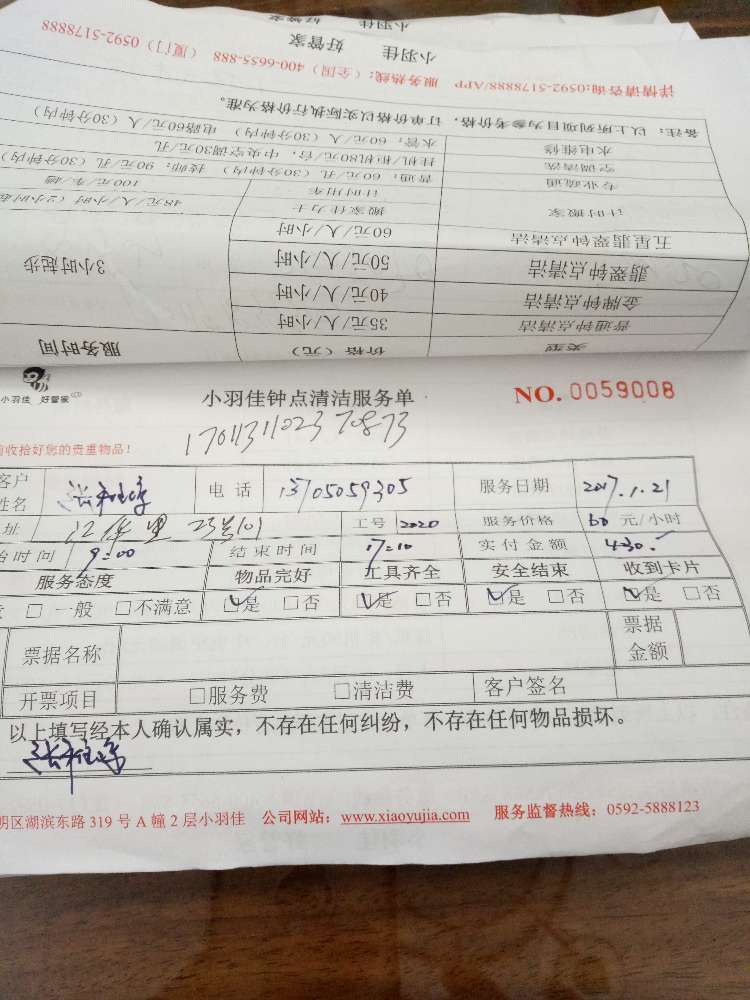 小羽佳 好管家
小羽佳 好管家
详情请咨询:0592-5178888/APP 服务热线:(全国)400-6655-888 (厦门)0592-5178888
备注:以上所列项目为参考价格,订单价格以实际执行价格为准。
水电维修 水管:60元/人(30分钟内) 电路60元/人(30分钟内)
空调清洗 挂机/柜机80元/台,中央空调30元/孔
专业疏通 普通:60元/孔(30分钟内) 技师:90元/孔(30分钟内)
计时用车 100元/车/趟
计时搬家 搬家佳力士 48元/人/小时(2小时起
五星翡翠钟点清洁 60元/人/小时
翡翠钟点清洁 50元/人/小时 3小时起步
金牌钟点清洁 40元/人/小时
普通钟点清洁 35元/人/小时
类型 价格(元) 服务时间
小羽佳 好管家
小羽佳钟点清洁服务单 NO. 0059008
收拾好您的贵重物品!
客户姓名 电话 13705059305 服务日期 2017.1.21
址 23号101 工号 2020 服务价格 60 元/小时
时间 9:00 结束时间 17:10 实付金额 430.-
服务态度 物品完好 工具齐全 安全结束 收到卡片
□一般 □不满意 ☑是 □否 ☑是 □否 ☑是 □否 ☑是 □否
票据名称 票据金额
开票项目 □服务费 □清洁费 客户签名
以上填写经本人确认属实,不存在任何纠纷,不存在任何物品损坏。
明区湖滨东路 319 号 A 幢 2 层小羽佳 公司网站:www.xiaoyujia.com 服务监督热线:0592-5888123